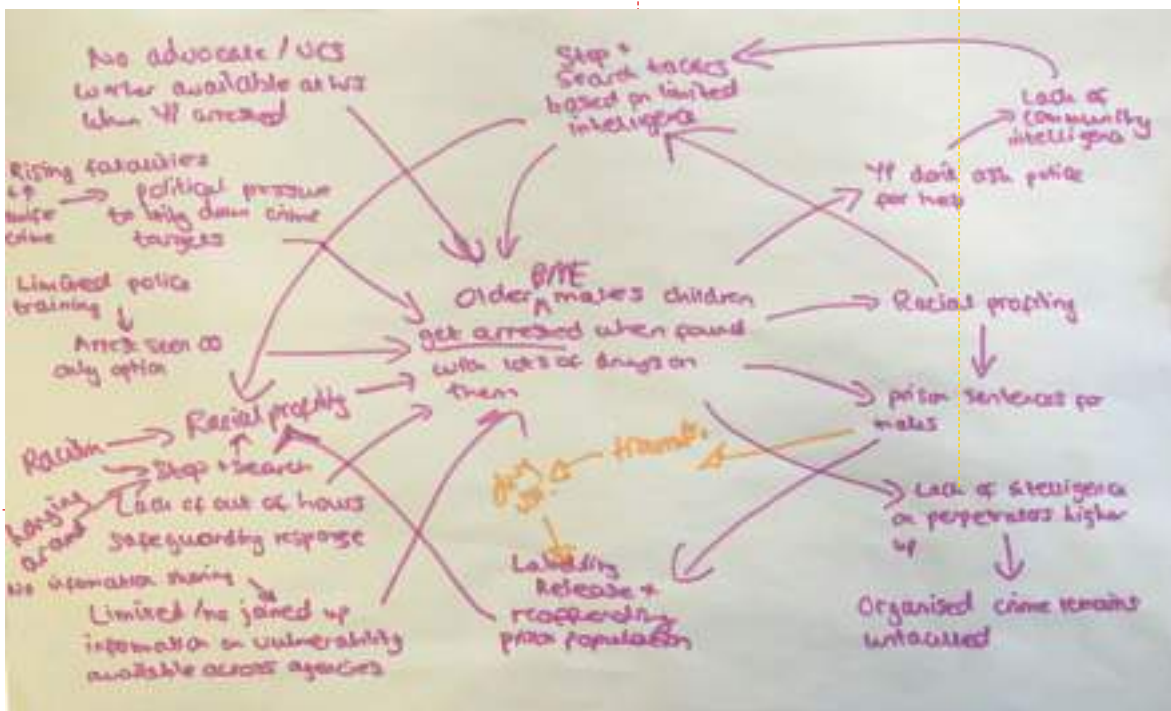 No advocate / UCS
worker available at
when YP arrested
Rising fatalities
knife
crime
political pressure
to bring down crime
targets
Limited police
training
Arrest seen as
only option
Racism
Racial profiling
Stop + Search
hanging
around
Lack of out of hours
safeguarding response
No information sharing
Limited / no joined up
information on vulnerability
available across agencies
Stop +
Search tactics
based on limited
intelligence
BME
Older males children
get arrested when found
with lots of drugs on
them
trauma
Labelling
Release +
reoffending
prison population
Lack of
community
intelligence
YP don't ask police
for help
Racial profiling
prison sentences for
males
Lack of intelligence
on perpetrators higher
up
Organised crime remains
untackled